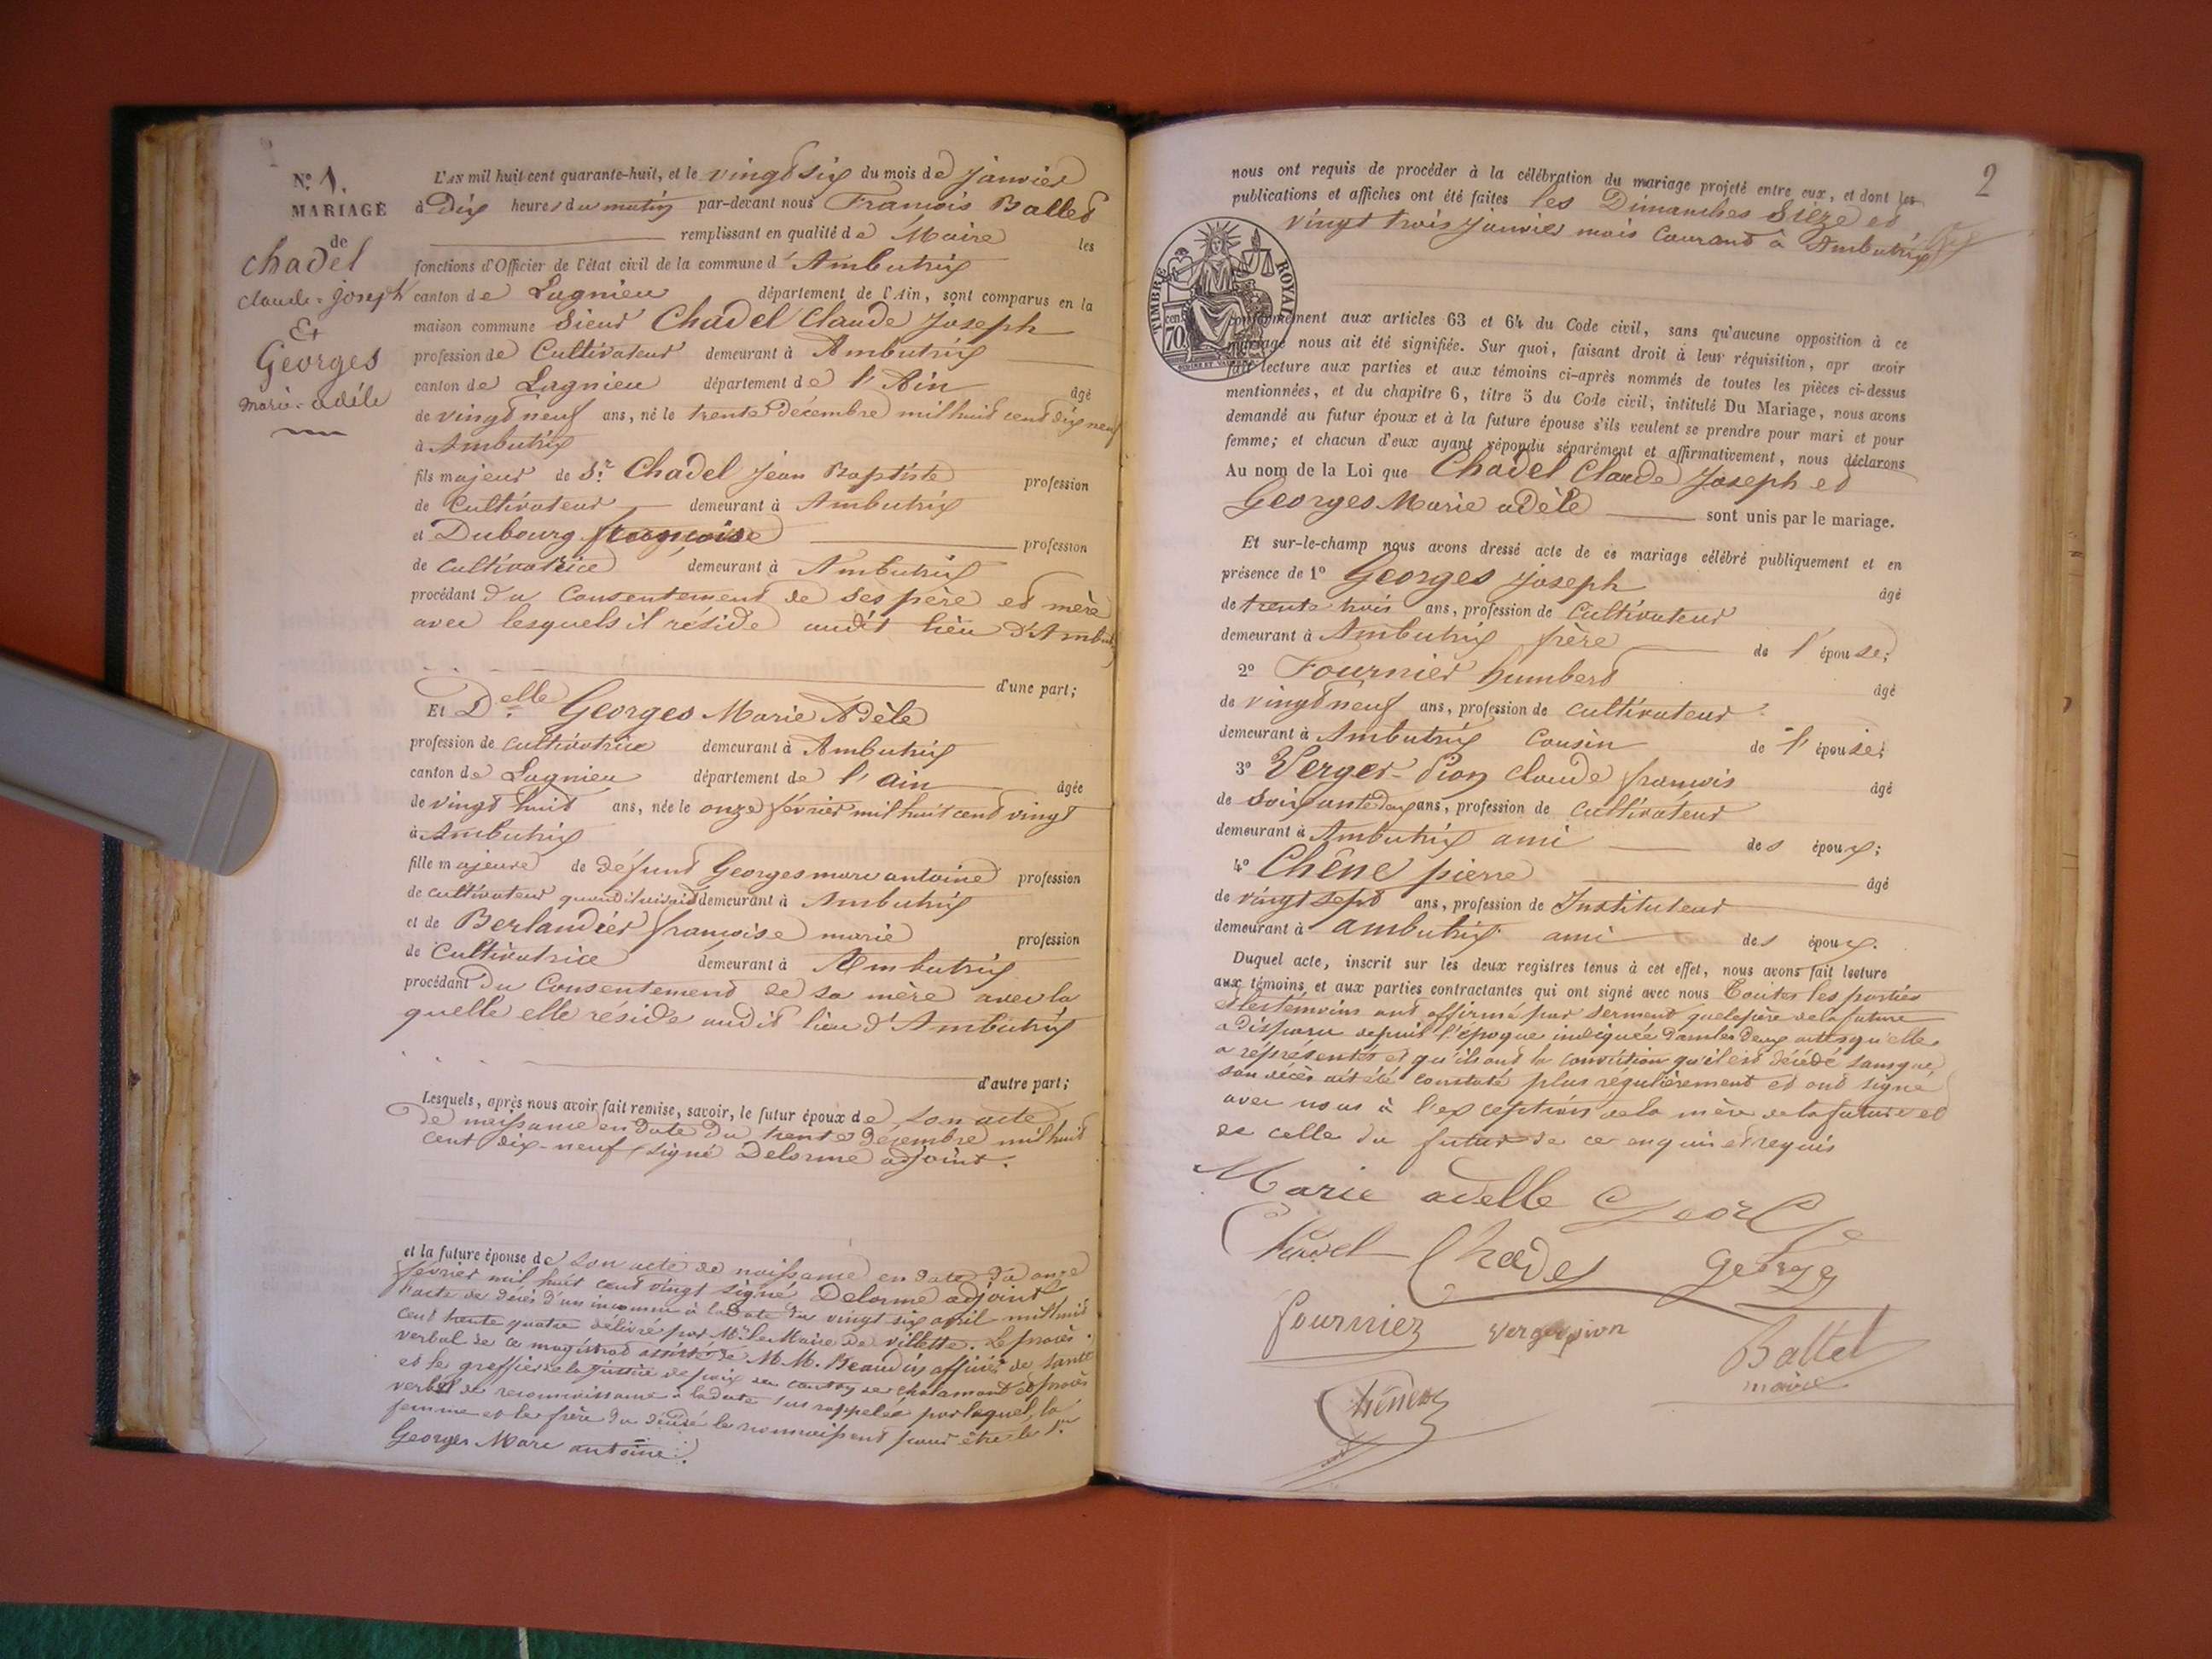 N.º 1.
MARIAGE
de
Chadel
Claude-joseph
Et
Georges
marie-adéle
L'AN mil huit cent quarante-huit, et le vingt six du mois de janvier
à Dix heures du matin par-devant nous François Ballet
remplissant en qualité de Maire les
fonctions d'Officier de l'état civil de la commune d'Ambutrix
canton de Lagnieu département de l'Ain, sont comparus en la
maison commune Sieur Chadel Claude Joseph
profession de Cultivateur demeurant à Ambutrix
canton de Lagnieu département de l'Ain âgé
de vingt neuf ans, né le trente Décembre mil huit cent dix neuf
à Ambutrix
fils majeur de Sr. Chadel Jean Baptiste profession
de Cultivateur demeurant à Ambutrix
et Dubourg françoise profession
de cultivatrice demeurant à Ambutrix
procédant du Consentement de ses père et mère
avec lesquels il réside audit lieu d'Ambut
d'une part;
Et Delle Georges Marie Adèle
profession de cultivatrice demeurant à Ambutrix
canton de Lagnieu département de l'ain âgée
de vingt huit ans, née le onze février mil huit cent vingt
à Ambutrix
fille majeure de défunt Georges marc antoine profession
de cultivateur quand il vivait demeurant à Ambutrix
et de Berlandier françoise marie profession
de Cultivatrice demeurant à Ambutrix
procédant du Consentement de sa mère avec la
quelle elle réside audit lieu d'Ambutrix
d'autre part;
Lesquels, après nous avoir fait remise, savoir, le futur époux de son acte
de naissance en date du trente décembre mil huit
cent dix-neuf signé Delorme adjoint.
et la future épouse de son acte de naissance en date du onze
février mil huit cent vingt signé Delorme adjoint
l'acte de décès d'un inconnu à la date du vingt six avril mil huit
cent trente quatre délivré par Mr. le Maire de villette. Le procès
verbal de ce magistrat assisté de M.M. Beaudin officier de santé
et le greffier de la justice de paix du canton de chalamont et procès
verbal de reconnaissance à la date sus rappelée par lequel, la
femme et les frère du décédé le reconnaissent pour être le Sr.
Georges Marc antoine.
2
nous ont requis de procéder à la célébration du mariage projeté entre eux, et dont les
publications et affiches ont été faites les Dimanches Sieze et
vingt trois Janvier mois Courant à Ambutrix
TIMBRE ROYAL
cen. 70
conformément aux articles 63 et 64 du Code civil, sans qu'aucune opposition à ce
mariage nous ait été signifiée. Sur quoi, faisant droit à leur réquisition, apr avoir
fait lecture aux parties et aux témoins ci-après nommés de toutes les pièces ci-dessus
mentionnées, et du chapitre 6, titre 5 du Code civil, intitulé Du Mariage, nous avons
demandé au futur époux et à la future épouse s'ils veulent se prendre pour mari et pour
femme; et chacun d'eux ayant répondu séparément et affirmativement, nous déclarons
Au nom de la Loi que Chadel Claude Joseph et
Georges Marie adèle sont unis par le mariage.
Et sur-le-champ nous avons dressé acte de ce mariage célébré publiquement et en
présence de 1º Georges joseph âgé
de trente trois ans, profession de Cultivateur
demeurant à Ambutrix frère de l'épouse;
2º Fournier humbert âgé
de vingt neuf ans, profession de cultivateur
demeurant à Ambutrix Cousin de l'épouse;
3º Verger-Pion claude françois âgé
de soixante deux ans, profession de cultivateur
demeurant à Ambutrix ami des époux;
4º Chêne pierre âgé
de vingt sept ans, profession de Instituteur
demeurant à ambutrix ami des époux.
Duquel acte, inscrit sur les deux registres tenus à cet effet, nous avons fait lecture
aux témoins et aux parties contractantes qui ont signé avec nous Toutes les parties
et les témoins ont affirmé par serment que le père de la future
a disparu depuis l'époque indiquée dans les deux actes qu'elle
a réprésentés et qu'ils ont la conviction qu'il est décédé sans que
son décès ait été constaté plus régulièrement et ont signé
avec nous à l'exception de la mère de la future et
de celle du futur de ce enquis et requis
Marie adelle George
Chadel Chadel George
fournier vergerpion
Ballet
maire
Chêne